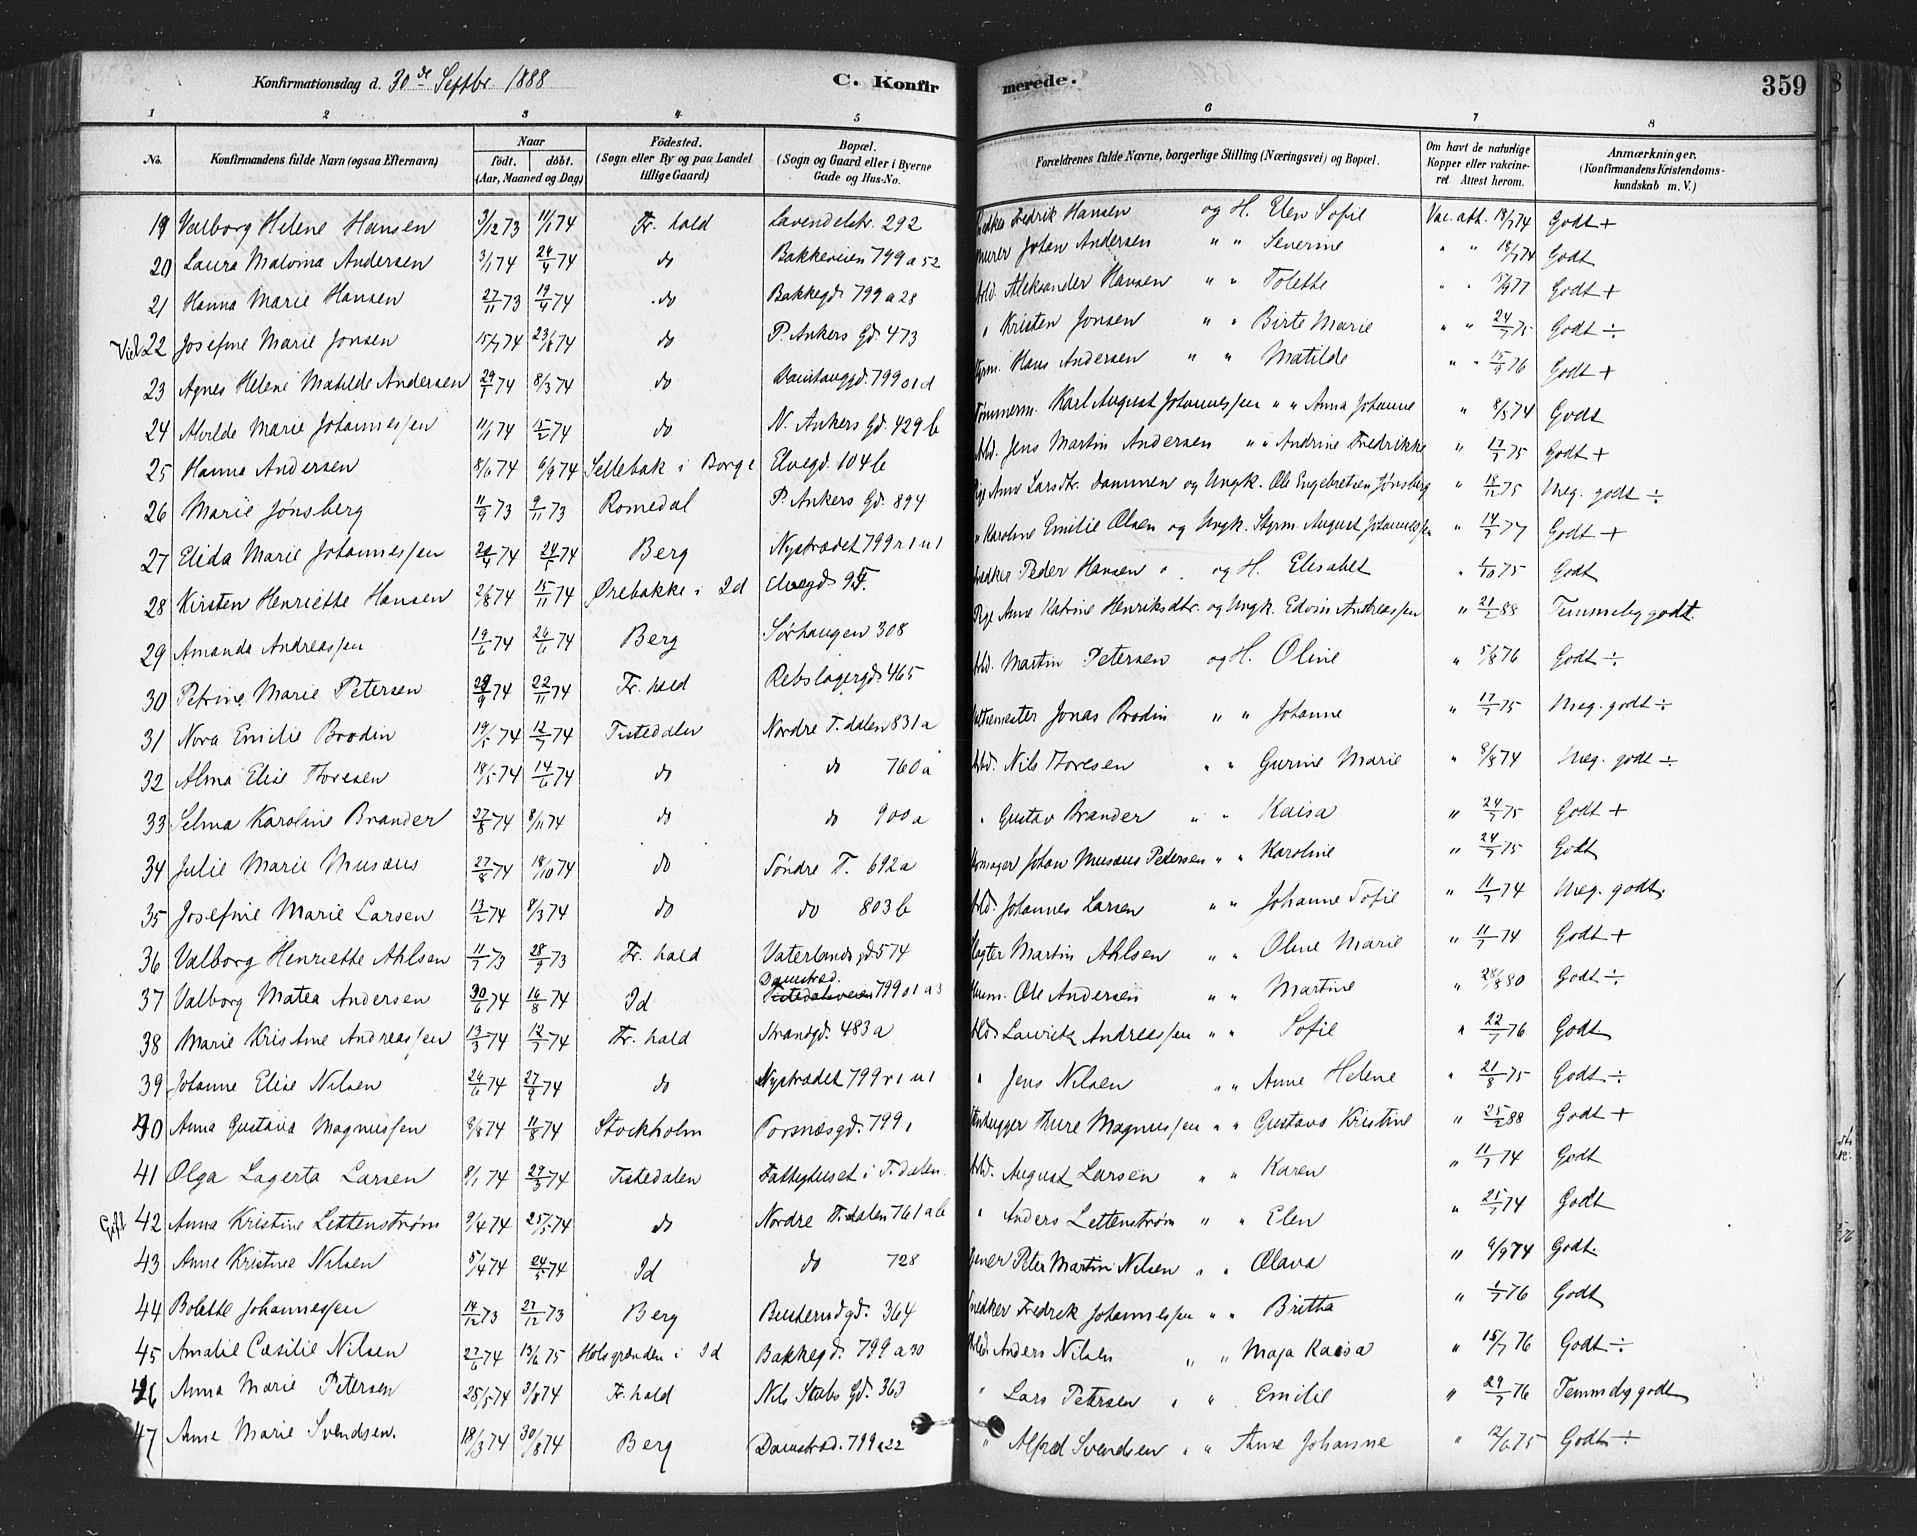 Konfirmationsdag d. 30de Septbr. 1888 C. Konfirmerede. 359
1 2 3 4 5 6 7 8
No. Konfirmandens fulde Navn (ogsaa Efternavn) Naar födt. döbt. (Aar, Maaned og Dag) Födested. (Sogn eller By og paa Landet tillige Gaard) Bopæl. (Sogn og Gaard eller i Byerne Gade og Hus-No. Forældrenes fulde Navne, borgerlige Stilling (Næringsvei) og Bopæl. Om havt de naturlige Kopper eller vakcineret. Attest herom. Anmærkninger. (Konfirmandens Kristendomskundskab m. V.)
19 Valborg Helene Hansen 3/12 73 11/1 74 Fr.hald Lavendelstr. 292 Fredrik Hansen og H. Elen Sofie Vac. att. 18/7 74 Godt +
20 Laura Malvina Andersen 3/1 74 24/4 74 do Bakkeveien 799 a 52 Murer Johan Andersen " " Severine " " 18/7 74 Godt
21 Hanna Marie Hansen 27/11 73 19/4 74 do Bakkegd. 799 a 28 Arbd. Aleksander Hansen " " Tolette " " 15/9 77 Godt +
22 Josefine Marie Jonsen 15/7 74 23/8 74 do P. Ankers Gd. 473 " Kristen Jonsen " " Birte Marie " " 24/7 75 Godt ÷
23 Agnes Helene Matilde Andersen 29/1 74 8/3 74 do 799 o 1 d Styrm. Hans Andersen " " Matilde " " 15/9 76 Godt +
24 Alvilde Marie Johannessen 11/1 74 15/2 74 do N. Ankers Gd. 429 b Tømmerm. Karl August Johannessen " " Anna Johanne " 8/8 74 Godt
25 Hanna Andersen 8/6 74 6/9 74 Sellebak i Borge Elvegd. 104 b Arbd. Jens Martin Andersen " " Andrine Fredrikke " 17/7 75 Godt +
26 Marie Jønsberg 11/9 73 9/11 73 Romedal P. Ankers Gd. 894 Pige Anne Larsdtr. Dammen og Ungk. Ole Engebretsen Jønsberg " 18/12 75 Meg. godt ÷
27 Elida Marie Johannessen 74 24/5 74 Berg Nystrædet 799 r 1 u 1 " Karoline Emilie Olsen og Ungk. Styrm. August Johannessen " 14/7 77 Godt +
28 Kirsten Henriette Hansen 2/8 74 15/11 74 Ørebakke i Id Elvegd. Peder Hansen og H. Elisabet " 1/10 75 Godt
29 Amanda Andreassen 19/6 74 26/6 74 Berg Sørhaugen 308 Pige Anne Katrine Henriksdtr. og Ungk. Edvin Andreassen " 21/2 88 Temmelig godt.
30 Petrine Marie Petersen 74 22/11 74 Fr.hald Rebslagergd. 465 Arbd. Martin Petersen og H. Oline " 5/8 76 Godt ÷
31 Nora Emilie Brodin 19/5 74 12/7 74 Tistedalen Nordre T.dalen 831 a Jonas Brodin " " Johanne " 17/7 75 Meg. godt ÷
32 Alma Elise Thoresen 18/5 74 14/6 74 do do 760 a Arbd. Nils Thoresen " " Gurine Marie " 8/8 74 Meg. godt ÷
33 Selma Karoline Brander 27/8 74 8/11 74 do do 900 a " Gustav Brander " " Kaisa " 24/7 75 Godt +
34 Julie Marie Musæus 27/8 74 18/10 74 do Søndre T. 692 a Johan Musæus Petersen " " Karoline " 24/7 75 Godt
35 Josefine Marie Larsen 13/2 74 8/3 74 do do 803 b Arbd. Johannes Larsen " " Johanne Sofie " 11/7 74 Meg. godt.
36 Valborg Henriette Ahlsen 11/7 73 28/9 73 Fr.hald Vaterlandsgd. 574 Martin Ahlsen " " Oline Marie " 11/7 74 Godt +
37 Valborg Matea Andersen 30/6 74 16/8 74 Id Damstræd. 799 o 1 a 3 Ole Andersen " " Martine " 28/8 80 Godt ÷
38 Marie Kristine Andreassen 13/3 74 12/7 74 Fr.hald Strandgd. 483 a Arbd. Laurits Andreassen " " Sofie " 22/7 76 Godt
39 Johanne Elise Nilsen 24/6 74 27/9 74 do Nystrædet 799 r 1 u 1 " Jens Nilsen " " Anne Helene " 21/8 75 Godt ÷
40 Anna Gustava Magnussen 9/8 74 11/8 74 Stockholm 799 Stenhugger Thure Magnussen " " Gustava Kristine " 25/2 88 Godt +
41 Olga Lagerta Larsen 8/1 74 29/3 74 Tistedalen Fattighuset i T.dalen Arbd. August Larsen " " Karen " 11/7 74 Godt
Gift 42 Anna Kristine Lettenstrøm 9/4 74 25/5 74 do Nordre T.dalen 761 a b " Anders Lettenstrøm " " Elen " 25/7 74 Godt
43 Anne Kristine Nilsen 5/4 74 24/5 74 Id do 728 Peter Martin Nilsen " " Olava " 6/9 74 Godt.
44 Bolette Johannessen 14/12 73 27/12 73 Berg Busterudgd. 364 Snedker Fredrik Johannessen " " Britha " 1/7 76 Godt
45 Amalie Cæsilie Nilsen 27/6 74 13/6 75 Holsgrenden i Id Bakkegd. 799 a 30 Arbd. Anders Nilsen " " Maja Kaisa " 15/7 76 Godt ÷
46 Anna Marie Petersen 25/5 74 3/8 74 Fr.hald Nils Stubs Gd. 363 " Lars Petersen " " Emilie " 29/7 76 Temmelig godt
47 Anne Marie Svendsen. 18/3 74 30/8 74 Berg Damstræd. 799 a 22 " Alfred Svendsen " " Anne Johanne " 12/6 75 Godt ÷